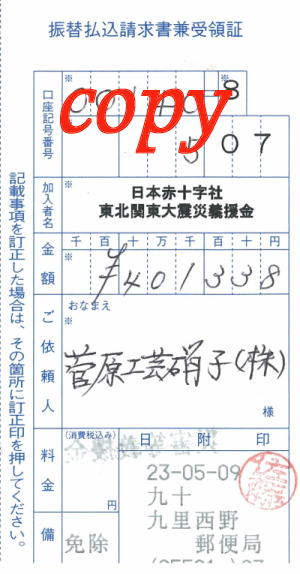 振替払込請求書兼受領証
口座記号番号
※
00140-8
copy
507
加入者名
※
日本赤十字社
東北関東大震災義援金
金額
千百十万千百十円
※
¥401338
ご依頼人
おなまえ
※
菅原工芸硝子(株)
様
料金
(消費税込み)
円
日附印
23-05-09
九十
九里西野
郵便局
備
免除
記載事項を訂正した場合は、その箇所に訂正印を押してください。